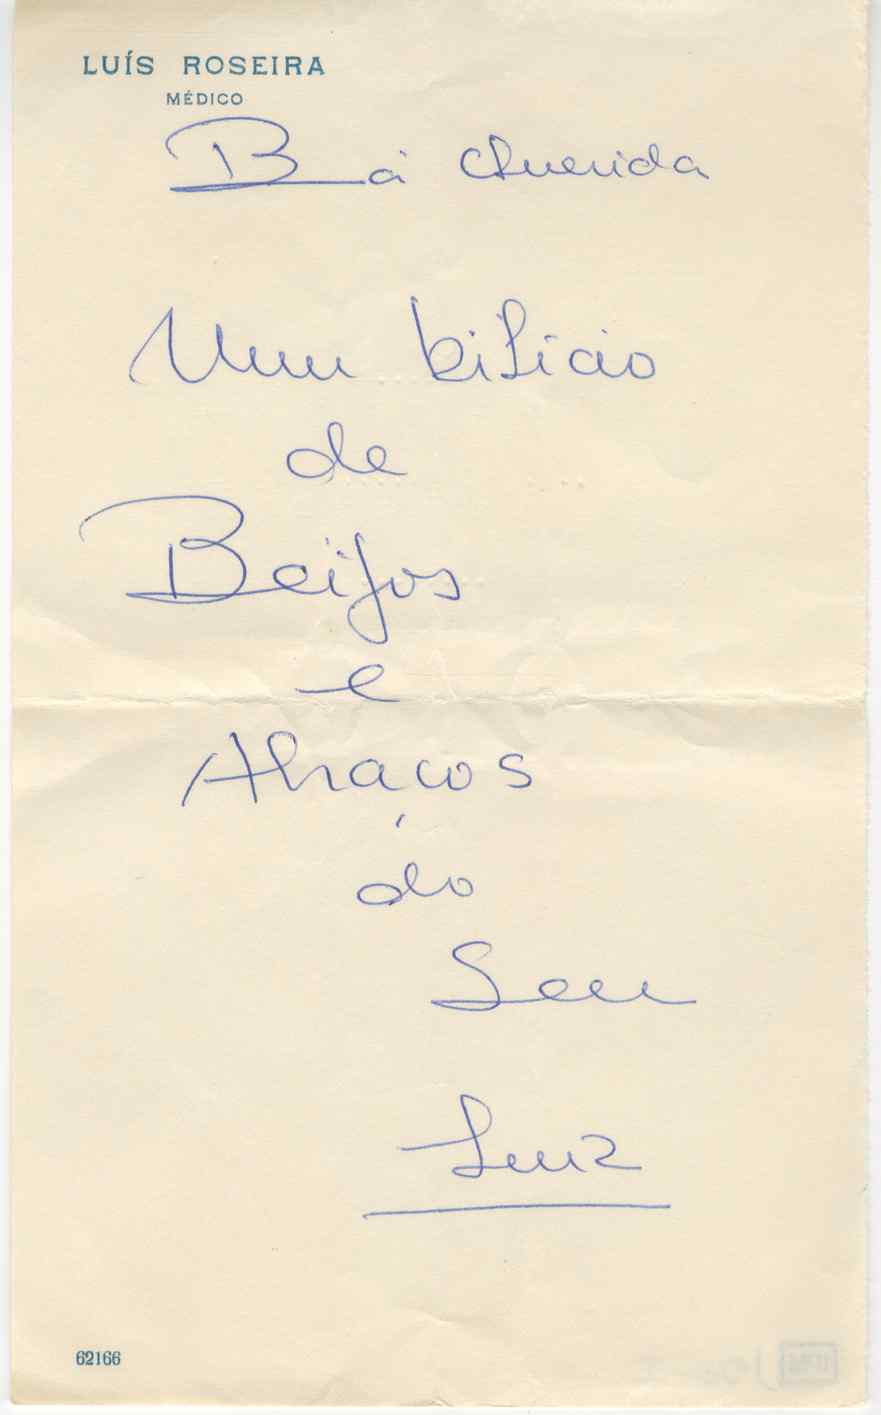 LUÍS ROSEIRA
MÉDICO
Bá Querida
Um bilião
de
Beijos
e
Abraços
do
Seu
Luiz
62166